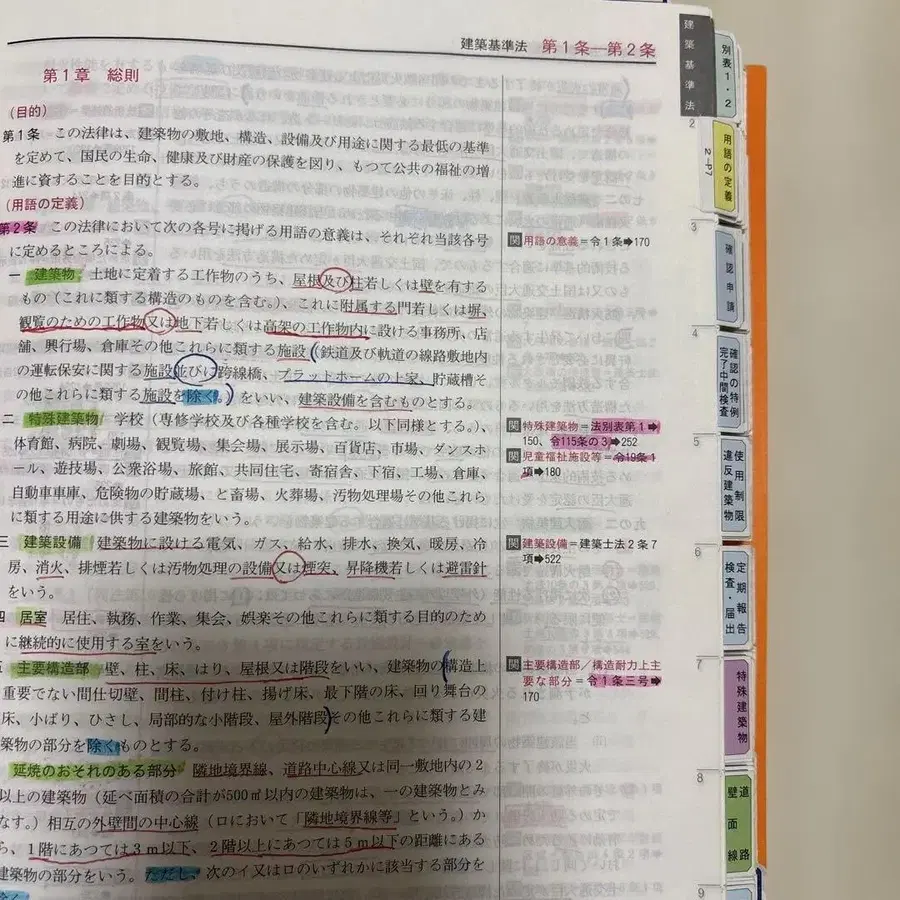 建築基準法 第1条―第2条
第1章 総則
(目的)
第1条 この法律は、建築物の敷地、構造、設備及び用途に関する最低の基準
を定めて、国民の生命、健康及び財産の保護を図り、もつて公共の福祉の増
進に資することを目的とする。
(用語の定義)
第2条 この法律において次の各号に掲げる用語の意義は、それぞれ当該各号
に定めるところによる。
一 建築物 土地に定着する工作物のうち、屋根及び柱若しくは壁を有する
もの(これに類する構造のものを含む。)、これに附属する門若しくは塀、
観覧のための工作物又は地下若しくは高架の工作物内に設ける事務所、店
舗、興行場、倉庫その他これらに類する施設(鉄道及び軌道の線路敷地内
の運転保安に関する施設並びに跨線橋、プラットホームの上家、貯蔵槽そ
の他これらに類する施設を除く。)をいい、建築設備を含むものとする。
二 特殊建築物 学校(専修学校及び各種学校を含む。以下同様とする。)、
体育館、病院、劇場、観覧場、集会場、展示場、百貨店、市場、ダンスホ
ール、遊技場、公衆浴場、旅館、共同住宅、寄宿舎、下宿、工場、倉庫、
自動車車庫、危険物の貯蔵場、と畜場、火葬場、汚物処理場その他これら
に類する用途に供する建築物をいう。
三 建築設備 建築物に設ける電気、ガス、給水、排水、換気、暖房、冷
房、消火、排煙若しくは汚物処理の設備又は煙突、昇降機若しくは避雷針
をいう。
四 居室 居住、執務、作業、集会、娯楽その他これらに類する目的のため
に継続的に使用する室をいう。
主要構造部 壁、柱、床、はり、屋根又は階段をいい、建築物の構造上
重要でない間仕切壁、間柱、付け柱、揚げ床、最下階の床、回り舞台の
床、小ばり、ひさし、局部的な小階段、屋外階段その他これらに類する建
築物の部分を除くものとする。
延焼のおそれのある部分 隣地境界線、道路中心線又は同一敷地内の2
以上の建築物(延べ面積の合計が500㎡以内の建築物は、一の建築物とみ
なす。)相互の外壁間の中心線(ロにおいて「隣地境界線等」という。)か
ら、1階にあつては3m以下、2階以上にあつては5m以下の距離にある
建築物の部分をいう。ただし、次のイ又はロのいずれかに該当する部分を
除く
関 用語の意義=令1条➡170
関 特殊建築物=法別表第1➡
150、令115条の3➡252
関 児童福祉施設等=令19条1
項➡180
関 建築設備=建築士法2条7
項➡522
関 主要構造部/構造耐力上主
要な部分=令1条三号➡
170
建築基準法
別表1・2
2
用語の定義
2→P7
3
確認申請
4
確認の特例
完了中間検査
5
使用制限
違反建築物
6
定期報告
検査・届出
7
特殊建築物
8
道路
壁面線
9